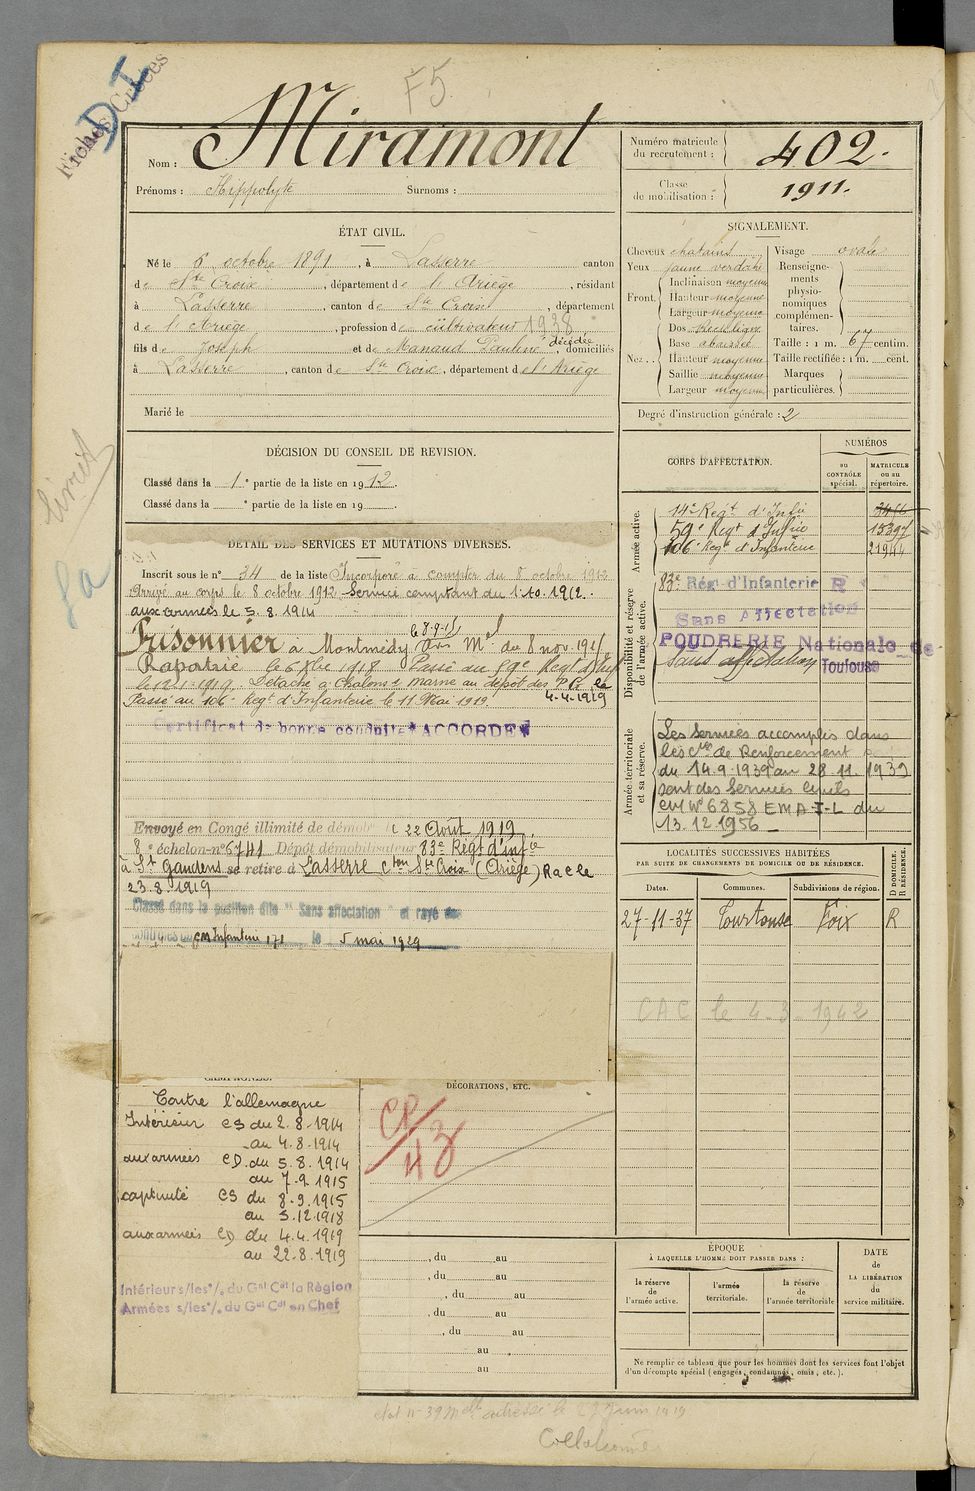 Fiches Créées
DI
F5.
Nom : Miramont
Prénoms : Hippolyte Surnoms :
Numéro matricule du recrutement : 402.
Classe de mobilisation : 1911.
ÉTAT CIVIL.
Né le 6 octobre 1891, à Lasserre canton
de Ste Croix, département de l'Ariège, résidant
à Lasserre, canton de Ste Croix, département
de l'Ariège, profession de cultivateur 1938
décédée
fils de Joseph et de Manaud Pauline, domiciliés
à Lasserre, canton de Ste Croix, département de l'Ariège
Marié le
SIGNALEMENT.
Cheveux chatains
Yeux jaune verdâtre
Front. Inclinaison moyenne
Hauteur moyenne
Largeur moyenne
Nez.. Dos rectiligne
Base abaissée
Hauteur moyenne
Saillie moyenne
Largeur moyenne
Visage ovale
Renseignements physionomiques complémentaires.
Taille : 1 m. 67 centim.
Taille rectifiée : 1 m. cent.
Marques particulières.
Degré d'instruction générale : 2
DÉCISION DU CONSEIL DE REVISION.
Classé dans la 1e partie de la liste en 1912.
Classé dans la e partie de la liste en 19 .
livret
DÉTAIL DES SERVICES ET MUTATIONS DIVERSES.
Inscrit sous le no 34 de la liste Incorporé à compter du 8 octobre 1912
Arrivé au corps le 8 octobre 1912. Service comptant du 1.10.1912.
aux armées le 5.8.1914
le 8-9-15
Prisonnier à Montmédy du 8 nov. 1915
Rapatrié le 6 Xbre 1918 Passé au 59e Regt d'Inf
le 12-1-1919. Détaché à Chalons s Marne au dépôt des P.G. le
4-4-1919
Passé au 106e Regt d'Infanterie le 11 Mai 1919
Certificat de bonne conduite "ACCORDÉ"
Envoyé en Congé illimité de démob le 22 Août 1919.
8e échelon no 6741 Dépôt démobilisateur 83e Regt d'infie
à St Gaudens se retire à Lasserre Cton Ste Croix (Ariège) Rac le
23.8.1919
Classé dans la position dite "Sans affectation" et rayé des
contrôles du CM Infanterie 171 le 5 mai 1929
CORPS D'AFFECTATION.
NUMÉROS
au CONTRÔLE spécial.
MATRICULE ou au répertoire.
Armée active.
14e Regt d'Infie 3466
59e Regt d'Infie 15397
106e Regt d'Infanterie 21944
Disponibilité et réserve de l'armée active.
83e Rég. d'Infanterie R
Sans Affectation
POUDRERIE Nationale de Toulouse
Sans affectation
Armée territoriale et sa réserve.
Les services accomplis dans
les Cies de Renforcement
du 14.9.1939 au 28.11.1939
sont des services civils
CM No 6858 EMA-I-L du
13.12.1956
LOCALITÉS SUCCESSIVES HABITÉES
PAR SUITE DE CHANGEMENTS DE DOMICILE OU DE RÉSIDENCE.
D DOMICILE. R RÉSIDENCE.
Dates. Communes. Subdivisions de région.
27-11-37 Tourtouse Foix R
CAC le 4-3-1942
CAMPAGNES.
Contre l'allemagne
Intérieur CS du 2.8.1914
au 4.8.1914
aux armées CD. du 5.8.1914
au 7.9.1915
captivité CS du 8.9.1915
au 5.12.1918
aux armées CD du 4.4.1919
au 22.8.1919
Intérieur s/les °/. du Gal Cdt la Région
Armées s/les °/. du Gal Cdt en Chef
DÉCORATIONS, ETC.
CP/43
, du au
, du au
, du au
, du au
, du au
au
au
ÉPOQUE
À LAQUELLE L'HOMME DOIT PASSER DANS :
la réserve de l'armée active.
l'armée territoriale.
la réserve de l'armée territoriale
DATE de LA LIBÉRATION du service militaire.
Ne remplir ce tableau que pour les hommes dont les services font l'objet
d'un décompte spécial (engagés, condamnés, omis, etc.).
Collationné